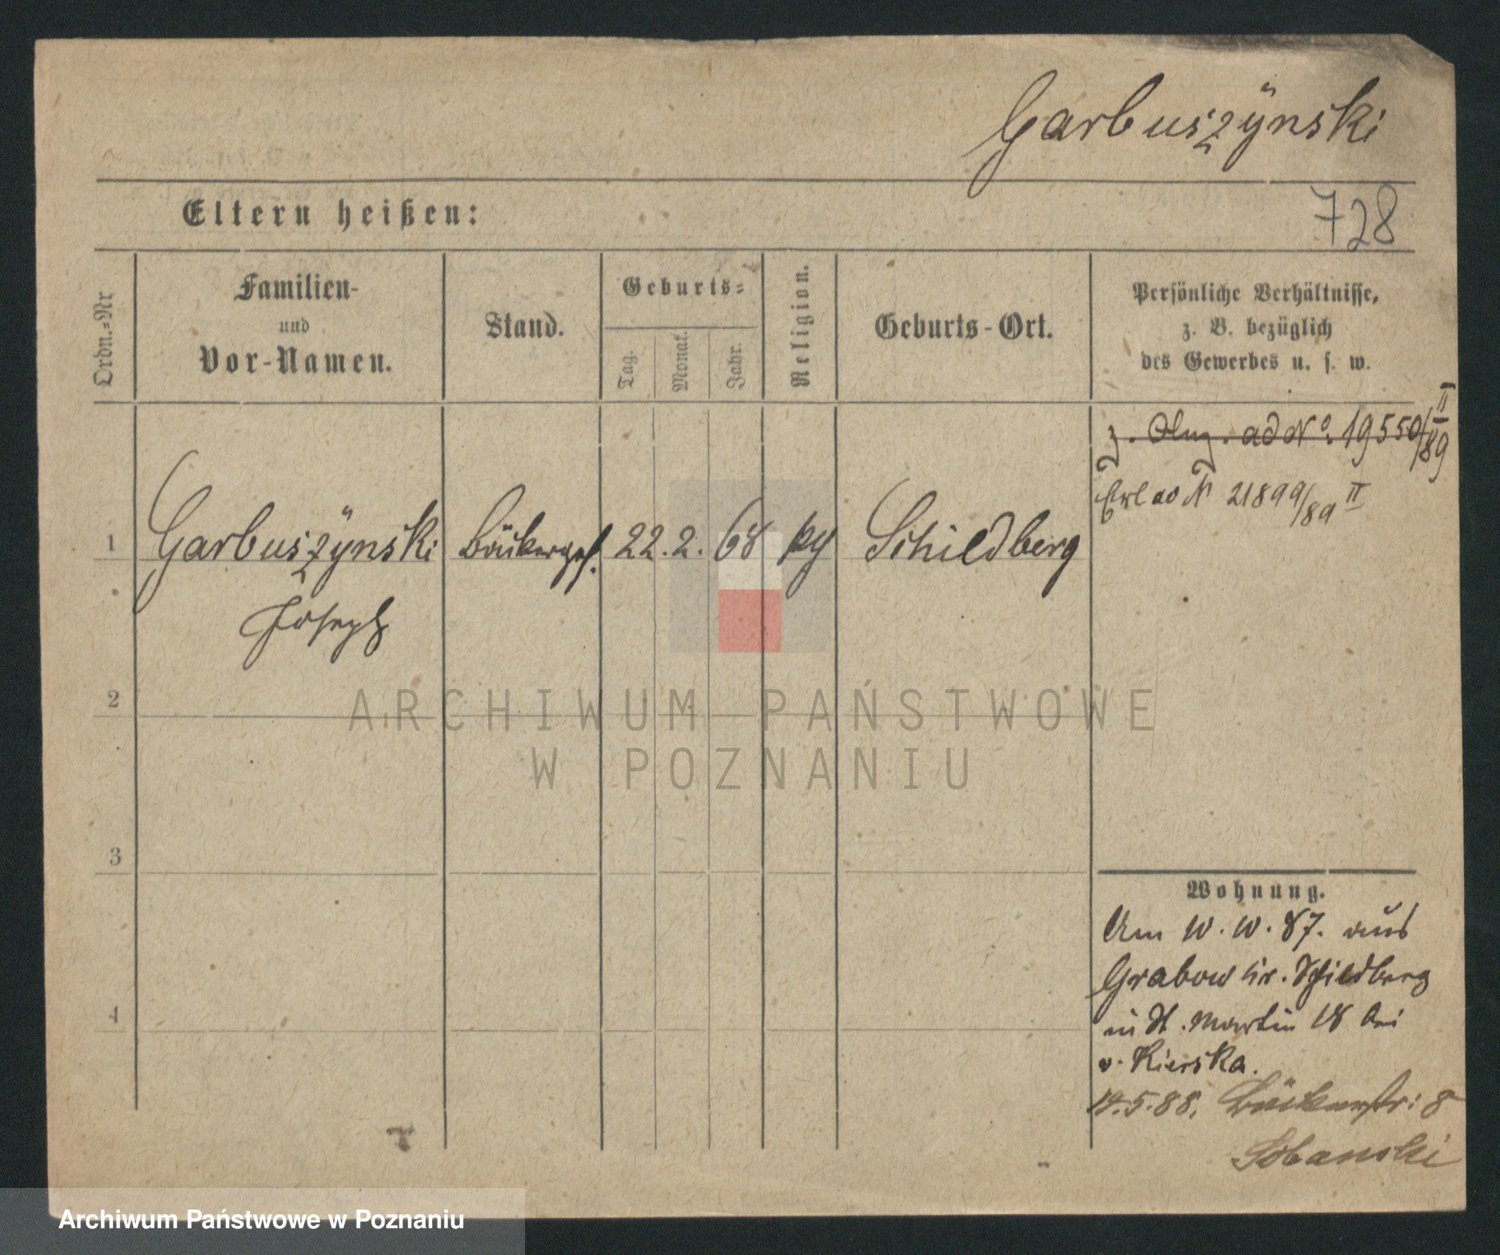 Garbuszÿnski
Eltern heißen:
728
Ordn.=Nr
Familien-
und
Vor-Namen.
Stand.
Geburts=
Tag.
Monat.
Jahr.
Religion.
Geburts-Ort.
Persönliche Verhältnisse,
z. B. bezüglich
des Gewerbes u. s. w.
ad No. 19550/89 II
Erl ad N 21899/89 II
1 Garbuszÿnski Bäckerges. 22. 2. 68 Schildberg
Joseph
2
ARCHIWUM PAŃSTWOWE
W POZNANIU
3
4
Wohnung.
Am 10. 10. 87. aus
Grabow Kr. Schildberg
in St. Martin 18 bei
v. Kierska.
14.5.88. Bäckerstr: 8
Sobanski
Archiwum Państwowe w Poznaniu